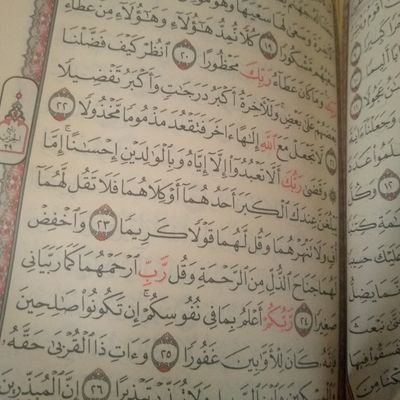 وَسَعَىٰ لَهَا سَعْيَهَا وَهُوَ
سَعْيُهُم مَّشْكُورًا ١٩ كُلًّا نُّمِدُّ هَٰٓؤُلَآءِ وَهَٰٓؤُلَآءِ مِنْ عَطَآءِ
رَبِّكَ وَمَا كَانَ عَطَآءُ رَبِّكَ مَحْظُورًا ٢٠ ٱنظُرْ كَيْفَ فَضَّلْنَا
بَعْضَهُمْ عَلَىٰ بَعْضٍ وَلَلْءَاخِرَةُ أَكْبَرُ دَرَجَٰتٍ وَأَكْبَرُ تَفْضِيلًا
٢١ لَّا تَجْعَلْ مَعَ ٱللَّهِ إِلَٰهًا ءَاخَرَ فَتَقْعُدَ مَذْمُومًا مَّخْذُولًا ٢٢
وَقَضَىٰ رَبُّكَ أَلَّا تَعْبُدُوٓا۟ إِلَّآ إِيَّاهُ وَبِٱلْوَٰلِدَيْنِ إِحْسَٰنًا إِمَّا
يَبْلُغَنَّ عِندَكَ ٱلْكِبَرَ أَحَدُهُمَآ أَوْ كِلَاهُمَا فَلَا تَقُل لَّهُمَآ
أُفٍّ وَلَا تَنْهَرْهُمَا وَقُل لَّهُمَا قَوْلًا كَرِيمًا ٢٣ وَٱخْفِضْ
لَهُمَا جَنَاحَ ٱلذُّلِّ مِنَ ٱلرَّحْمَةِ وَقُل رَّبِّ ٱرْحَمْهُمَا كَمَا رَبَّيَانِى
صَغِيرًا ٢٤ رَّبُّكُمْ أَعْلَمُ بِمَا فِى نُفُوسِكُمْ إِن تَكُونُوا۟ صَٰلِحِينَ
فَإِنَّهُۥ كَانَ لِلْأَوَّٰبِينَ غَفُورًا ٢٥ وَءَاتِ ذَا ٱلْقُرْبَىٰ حَقَّهُۥ
وَٱلْمِسْكِينَ وَٱبْنَ ٱلسَّبِيلِ وَلَا تُبَذِّرْ تَبْذِيرًا ٢٦ إِنَّ ٱلْمُبَذِّرِينَ